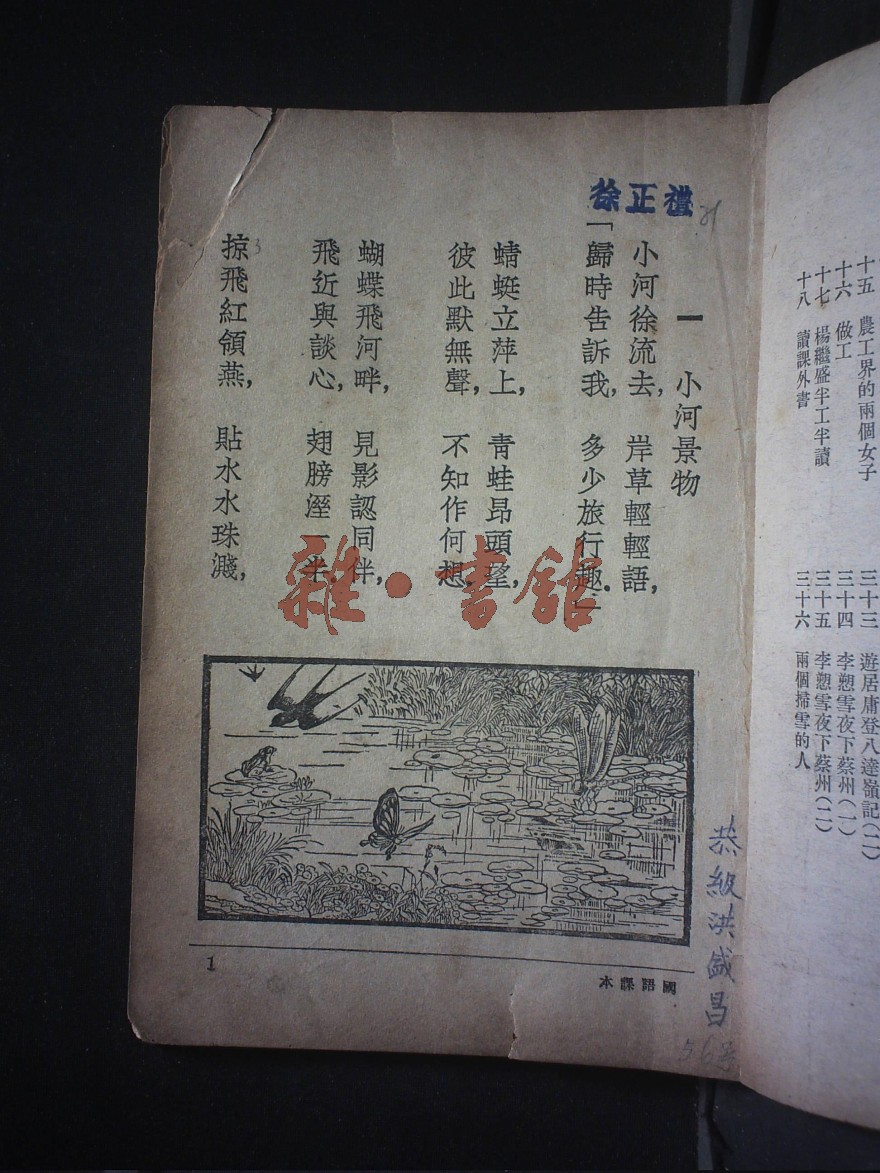 十五　農工界的兩個女子
十六　做工
十七　楊繼盛半工半讀
十八　讀課外書
三十三　遊居庸登八達嶺記(二)
三十四　李愬雪夜下蔡州(一)
三十五　李愬雪夜下蔡州(二)
三十六　兩個掃雪的人
徐正禮
一　小河景物
小河徐流去，岸草輕輕語，
「歸時告訴我，多少旅行趣。」
蜻蜓立萍上，青蛙昂頭望，
彼此默無聲，不知作何想。
蝴蝶飛河畔，見影認同伴，
飛近與談心，翅膀溼一半。
掠飛紅領燕，貼水水珠濺，
雜·書館
國語課本
1
恭級洪盛昌
56号